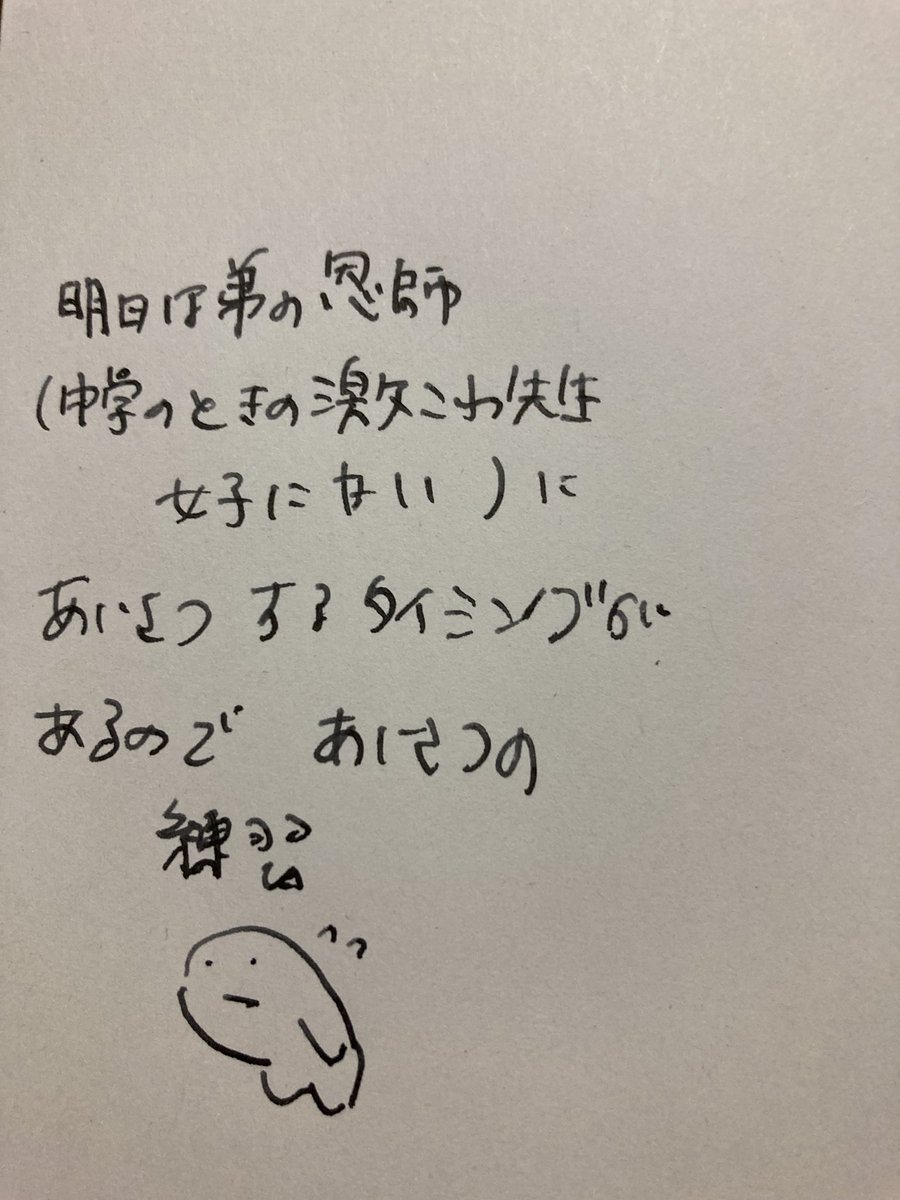 明日は弟の恩師
(中学のときの激交こわ先生
女子にない)に
あいさつするタイミングが
あるので あいさつの
練習